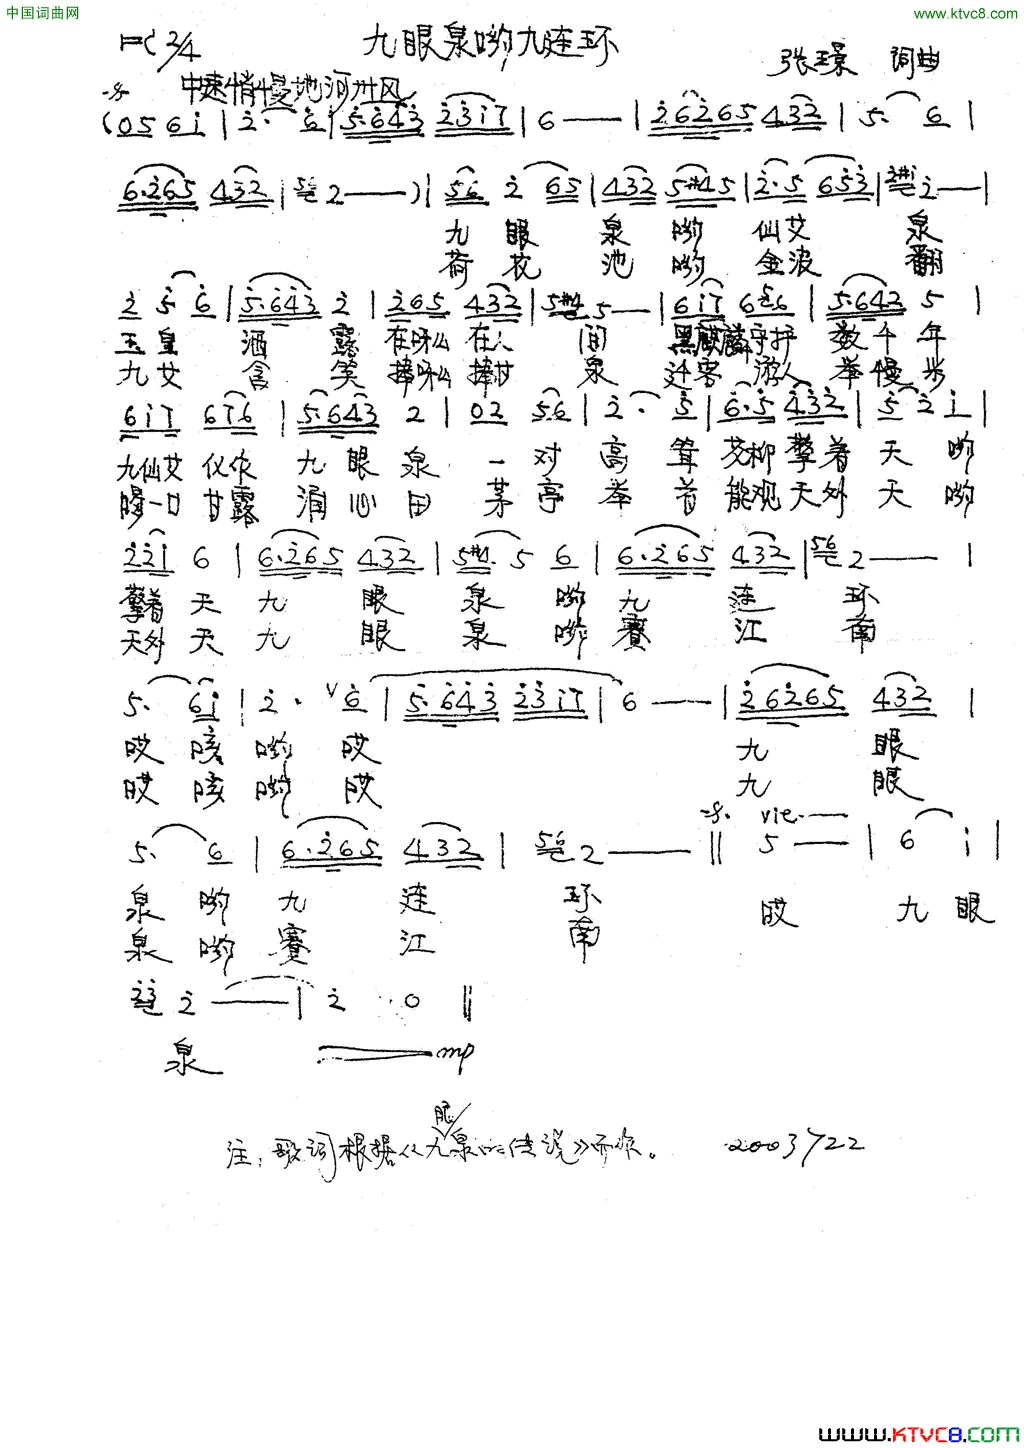 中国词曲网
www.ktvc8.com
1=C 2/4
九眼泉哟九连环
张璟 词曲
中速稍慢地 河州风
(05 6i | 2· 6 | 5·643 23i7 | 6 — — | 26265 432 | 5· 6 |
6·265 432 | 56 2 — — ) | 56 2 65 | 432 5#45 | 2·5 653 | 2#1 2 — |
九 眼 泉 哟 仙艾 泉
荷 花 池 哟 金波 翻
2 5 6 | 5·643 2 | 265 432 | 5#4 5 — | 6i7 656 | 5·642 5 |
玉皇 洒 露 在呀么在人 间 黑麒麟守护 数千年
九艾 含 笑 捧呀么捧甘 泉 迁客 游人 举慢步
6i7 676 | 5·643 2 | 02 56 | 2· 5 | 6·5 432 | 5 2 i |
九仙艾 仪依 九眼泉 一对 高耸 艾柳 擎着 天 哟
喝一口 甘露 涌心田 茅亭 举首 能观 天外 天 哟
22i 6 | 6·265 432 | 5#4·5 6 | 6·265 432 | 56 2 — — |
擎着 天 九 眼 泉 哟 九 连 环
天外 天 九 眼 泉 哟 赛 江 南
5· 6i | 2· V 6 | 5·643 23i7 | 6 — — | 26265 432 |
哎 咳 哟 哎 九 眼
哎 咳 哟 哎 九 眼
vie.
5· 6 | 6·265 432 | 56 2 — — || 5 — — | 6 i |
泉 哟 九 连 环 哎 九 眼
泉 哟 赛 江 南
23 2 — — | 2 0 ||
泉 mp
注：歌词根据《九眼泉的传说》而作。 2003722
www.KTVC8.com